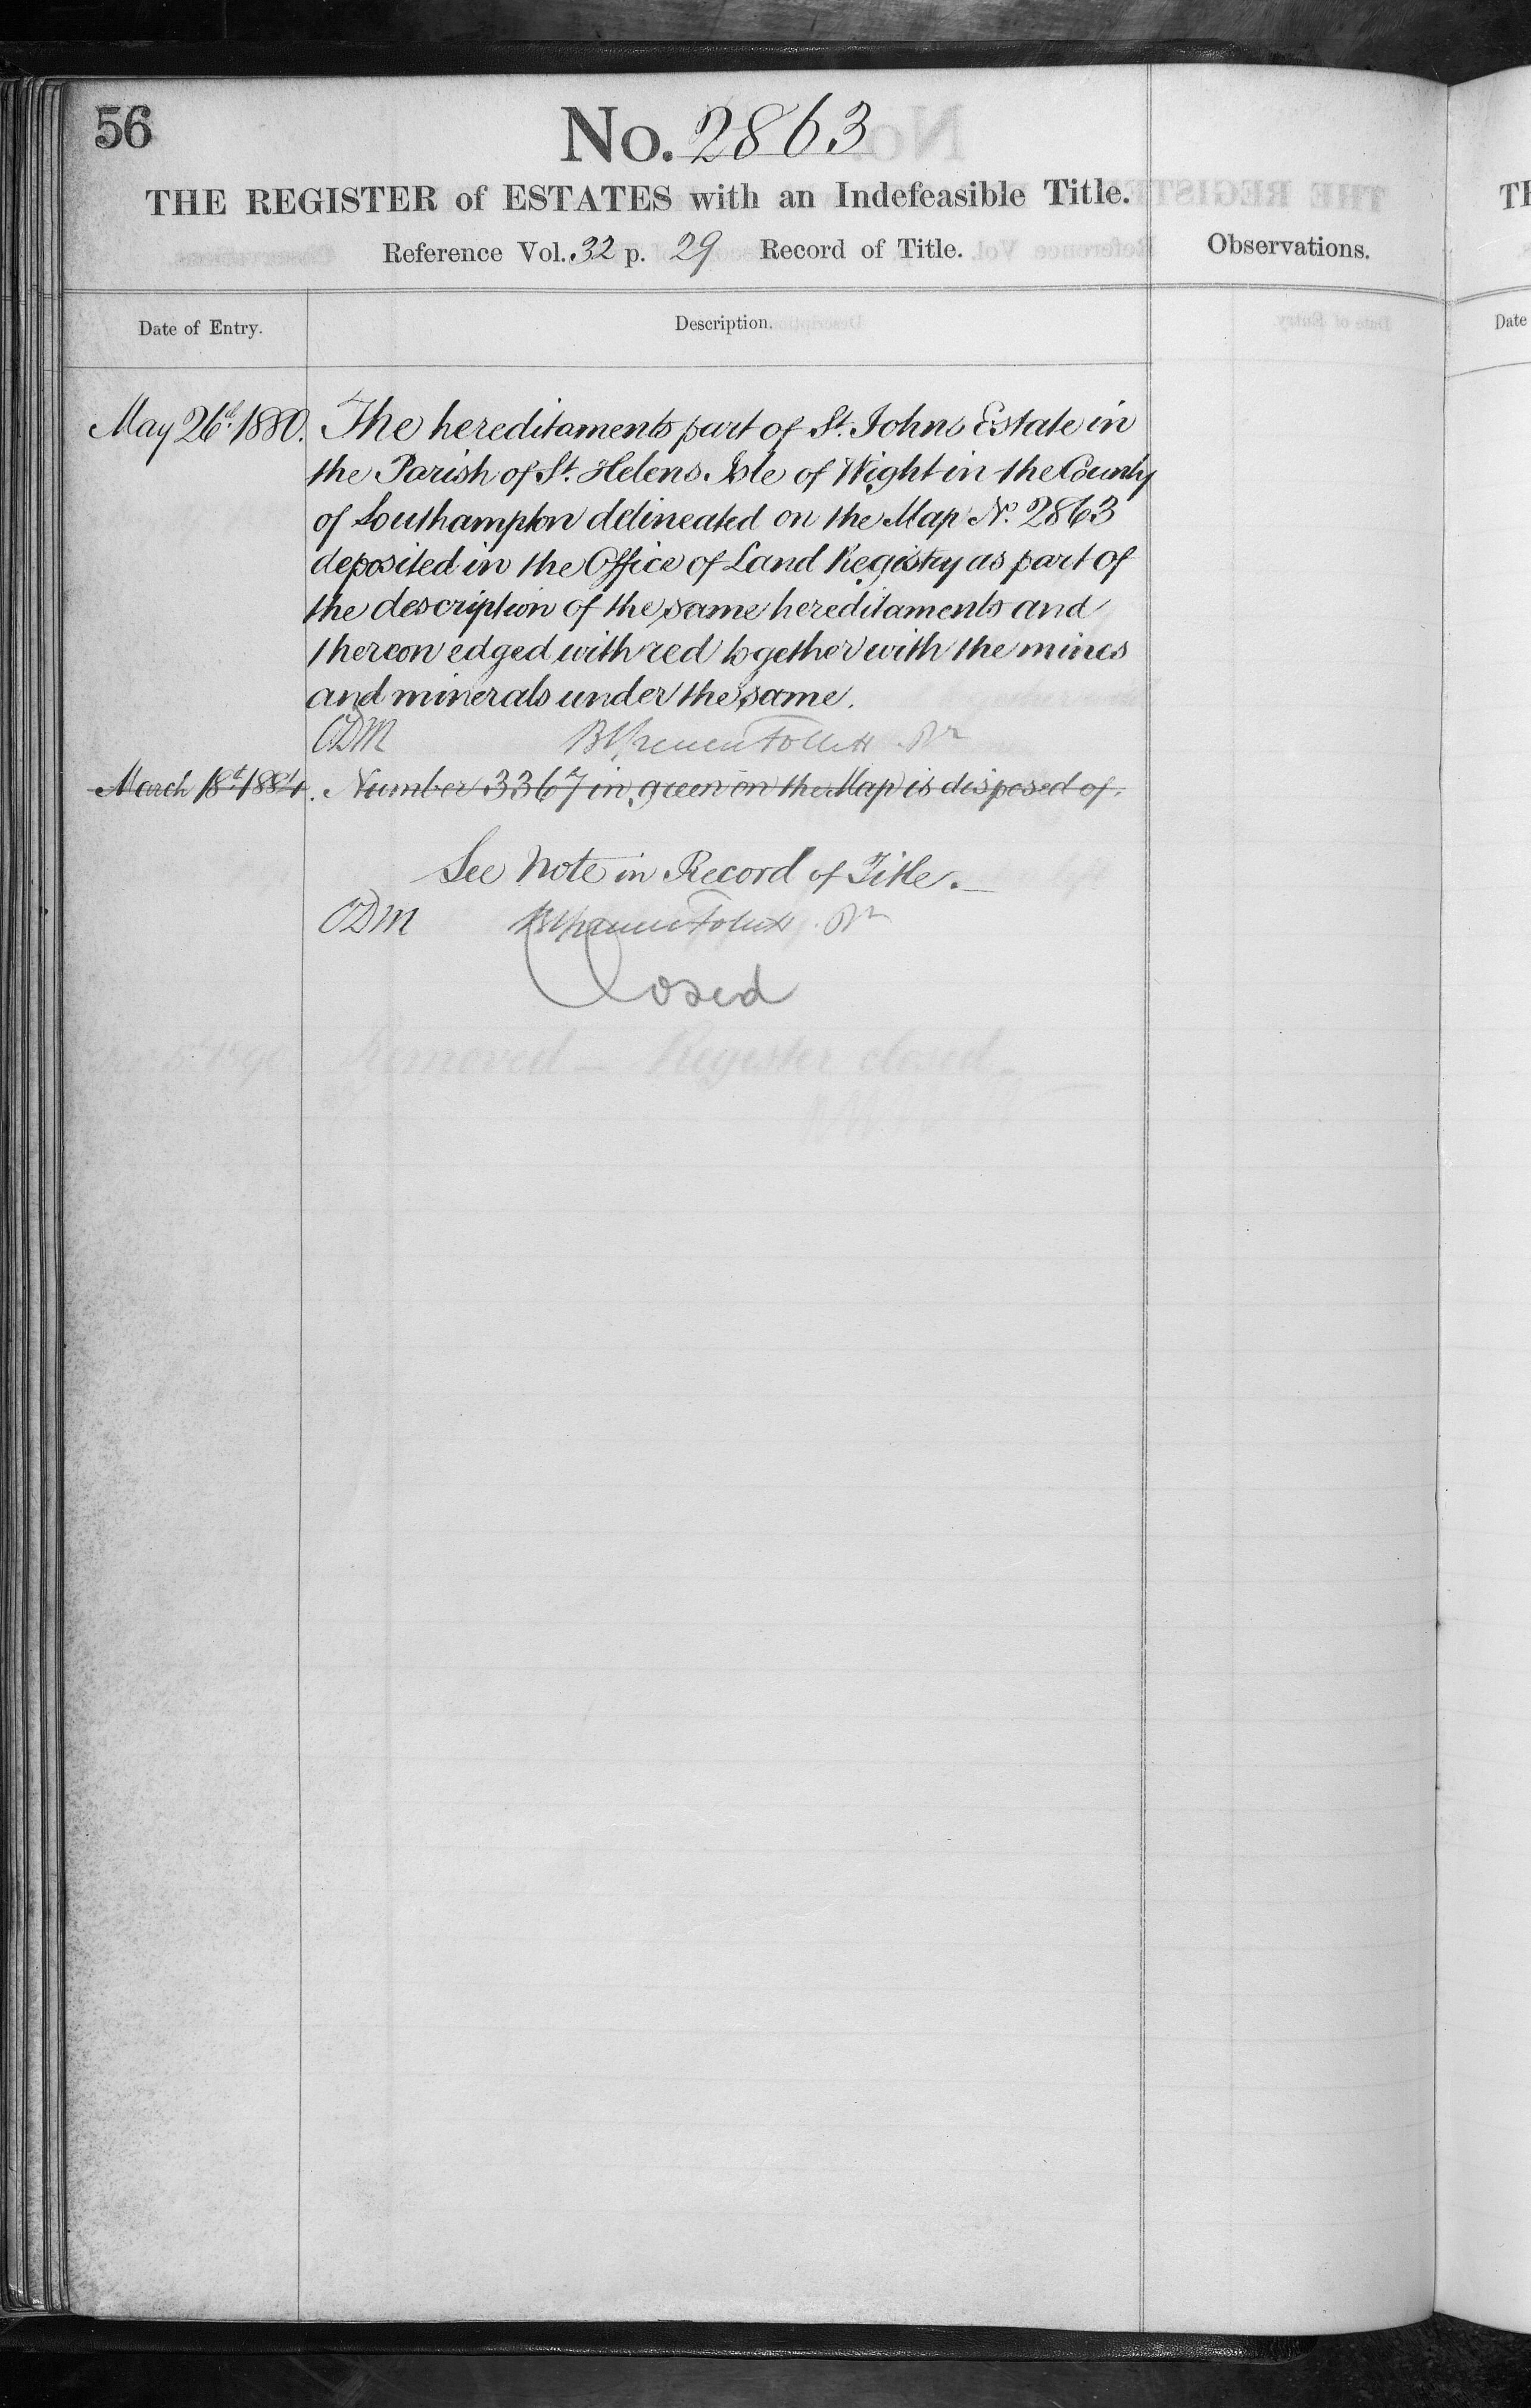 56
No. 2863
THE REGISTER of ESTATES with an Indefeasible Title.
Reference Vol. 32 p. 29 Record of Title.
Observations.
Date of Entry.
Description.
May 26th 1880. The hereditaments part of St. Johns Estate in
the Parish of St. Helens Isle of Wight in the County
of Southampton delineated on the Map No. 2863
deposited in the Office of Land Registry as part of
the description of the same hereditaments and
thereon edged with red together with the mines
and minerals under the same.
CDM Follett Rr
March 18th 1884. Number 3367 in green on the Map is disposed of.
See Note in Record of Title.
CDM Follett Rr
Closed
Removed — Register closed
Date